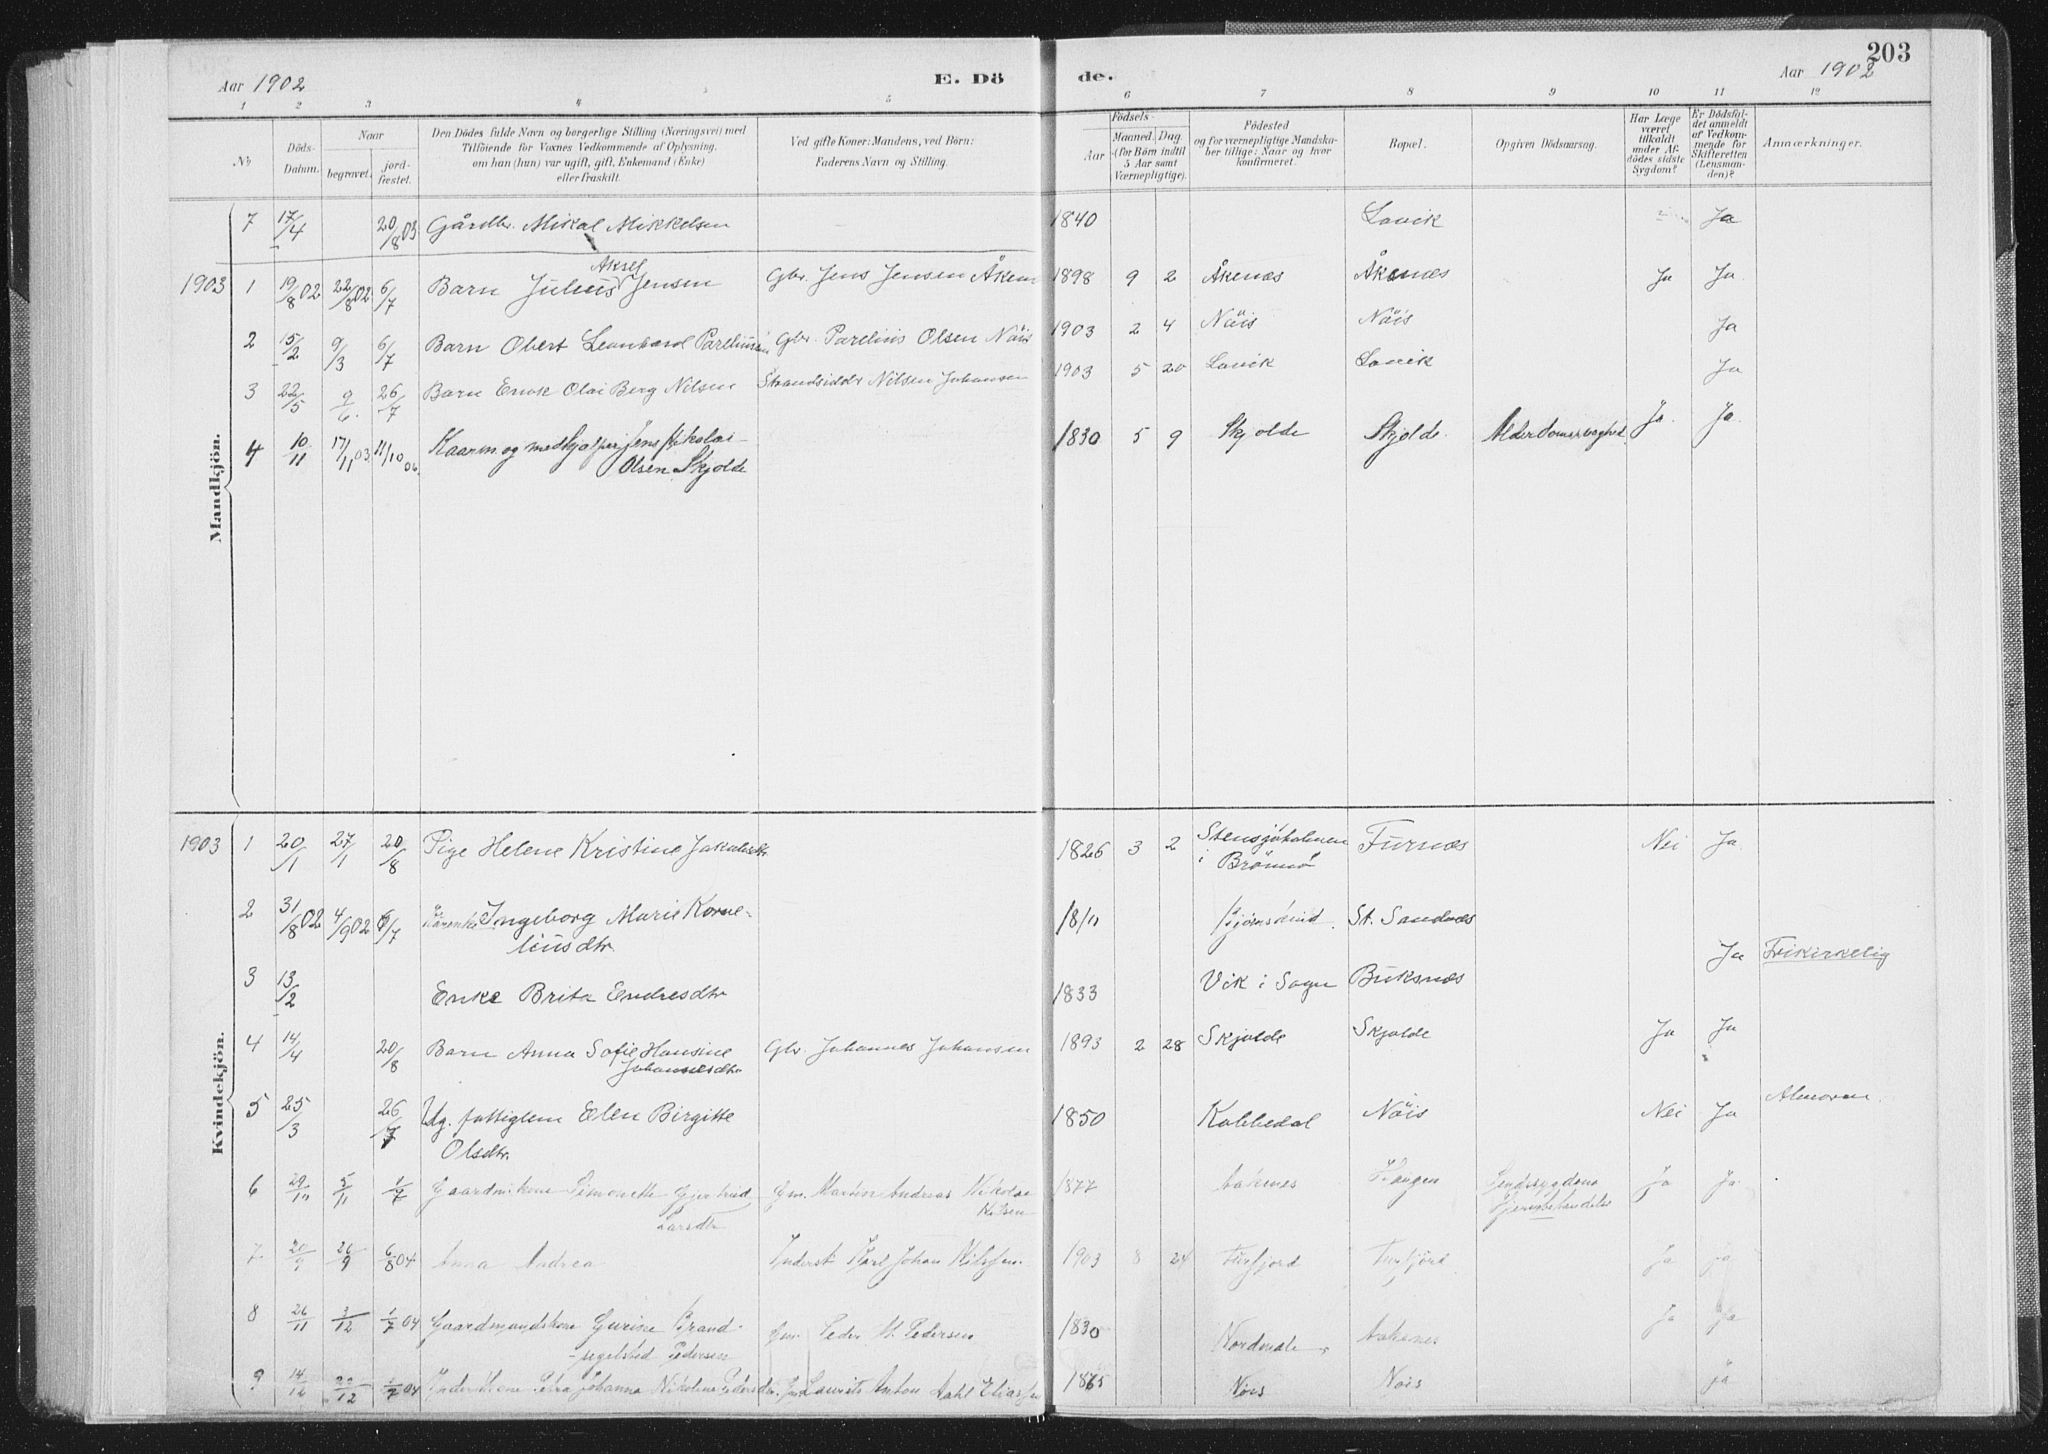 203
Aar 1902 E. Dö de. Aar 1902
1 2 3 4 5 6 7 8 9 10 11 12
No
Döds-
Datum.
Naar
begravet.
jord-
fæstet.
Den Dödes fulde Navn og borgerlige Stilling (Næringsvei) med
Tilföiende for Voxnes Vedkommende af Oplysning,
om han (hun) var ugift, gift, Enkemand (Enke)
eller fraskilt.
Ved gifte Koner: Mandens, ved Börn:
Faderens Navn og Stilling.
Födsels-
Aar
Maaned. Dag.
(for Börn indtil
5 Aar samt
Værnepligtige).
Födested
og for værnepligtige Mandska-
ber tillige: Naar og hvor
konfirmeret.
Bopæl.
Opgiven Dödsaarsag.
Har Læge
været
tilkaldt
under Af-
dödes sidste
Sygdom?
Er Dödsfal-
det anmeldt
af Vedkom-
mende for
Skifteretten
(Lensman-
den)?
Anmærkninger.
Mandkjön.
7 17/4 20/8 03 Gårdbr. Mikal Mikkelsen 1840 Lavik Ja
Aksel
1903 1 19/8 02 22/8 02 6/7 Barn Julius Jensen Gbr. Jens Jensen Åkenæs 1898 9 2 Åkenæs Åkenæs Ja Ja
2 15/2 9/3 6/7 Barn Obert Leonhard Pareliusen Gbr. Parelius Olsen Nöis 1903 2 4 Nöis Nöis Ja
3 22/5 9/6. 26/7 Barn Enok Olai Berg Nilsen Strandsidder Nilsen Johansen 1903 5 20 Lavik Lavik Ja
4 10/11 17/11 03 11/10 06 Kaarm og medhjælper Jens Nikolai 1830 5 9 Skjolde Skjolde. Alderdomssvaghed Ja. Ja.
Olsen Skjolde
Kvindekjön.
1903 1 20/1 27/1 20/8 Pige Helene Kristine Jakobsdtr 1826 3 2 Stensjøholmen Furnæs Nei Ja.
i Brönnö
2 31/8 02 4/9 02 6/7 Ingeborg Marie Korne- 1811 St. Sandnæs
liusdtr.
3 13/2 Enke Brita Endresdtr 1833 Vik i Sogn Buksnæs Ja Frikirkelig
4 14/4 20/8 Barn Anna Sofie Hansine Gbr. Johannes Johansen 1893 2 28 Skjolde Skjolde Ja Ja
Johannesdtr
5 25/3 26/7 Ug. fattiglem Elen Birgitte 1850 Kobbedal Nöis Nei Ja
Olsdtr.
6 29/10 5/11 1/7 Gaardm.kone Simonette Gjertrud Gm. Martin Andreas Nikolai 1877 Aaknes Haugen Ja Ja.
Larsdtr Nilsen
7 20/9 26/9 6/8 04 Anna Andrea Inderst Karl Johan Nilssen. 1903 8 24 Fusfjord Fusfjord Ja ja
8 26/11 3/12 1/7 04 Gaardmandskone Gurine Brand- Gm. Peder M. Pedersen 1830 Aaknes Ja ja
Pedersen
9 14/12 22/12 1/7 04 Petra Johanna Nikoline Pedersdtr. Laurits Anton Dahl Eliassen 1865 Nöis Nöis ja